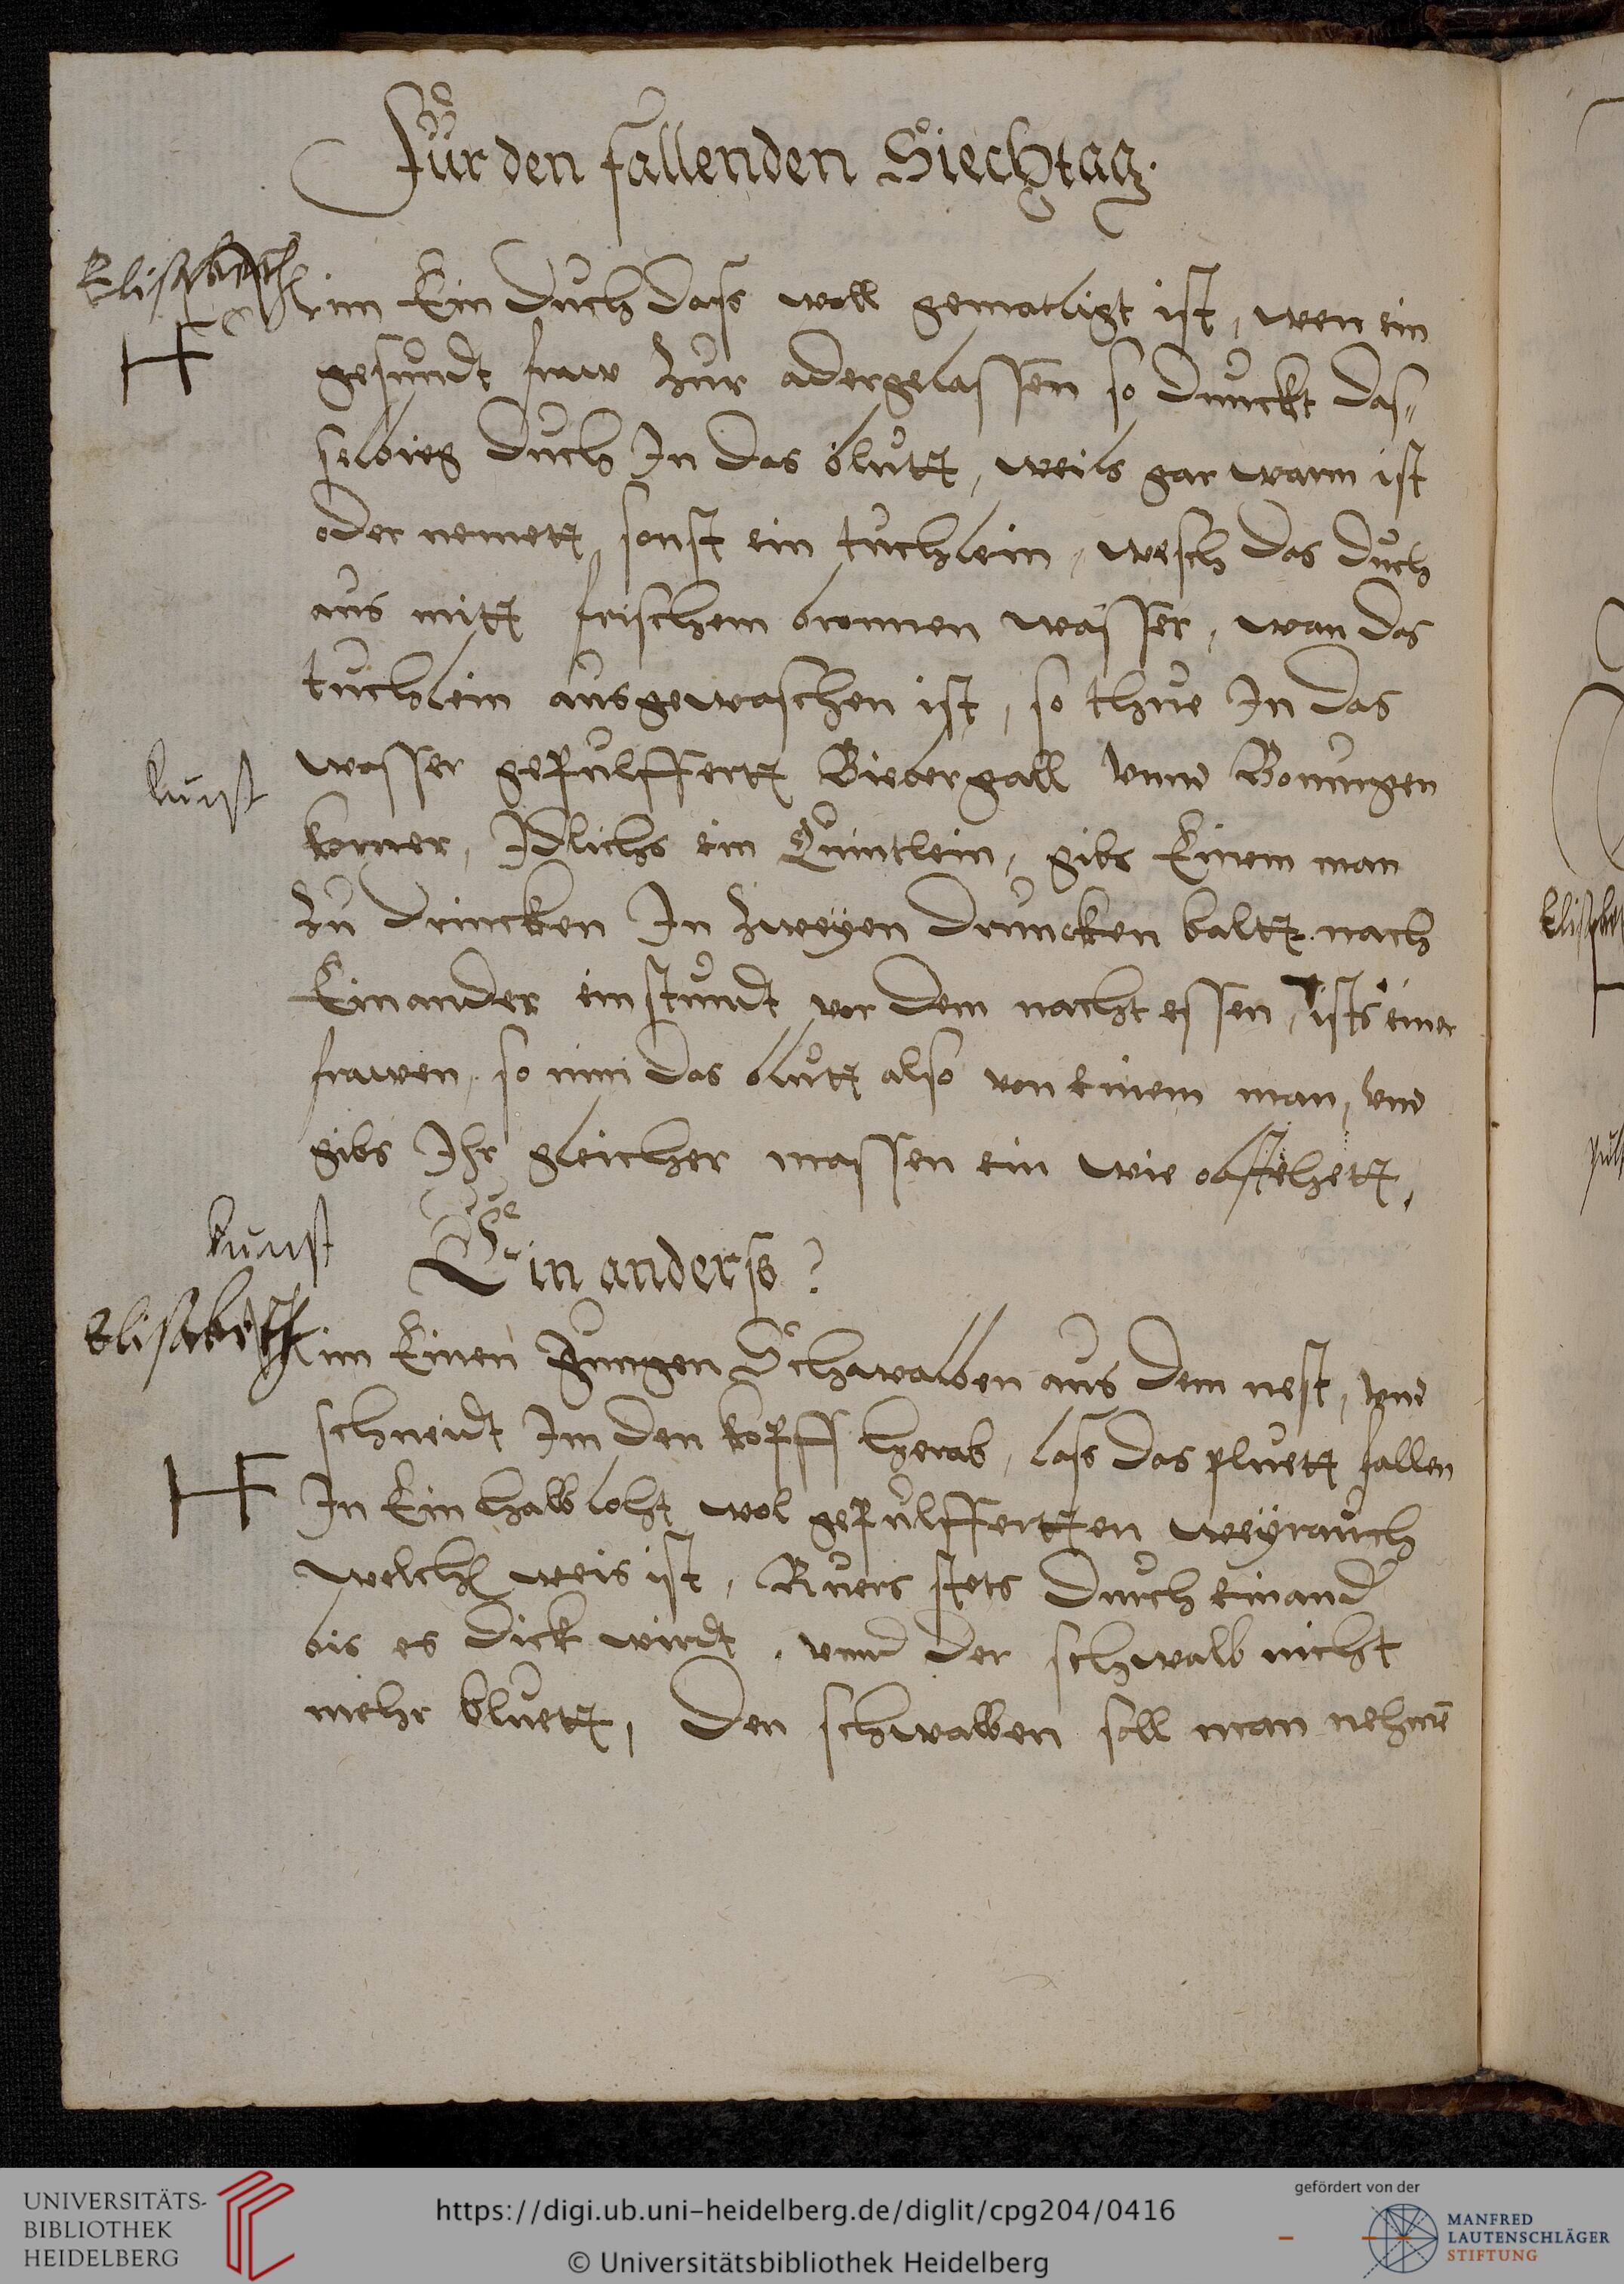 Für den fallenden Siechtag.
Elisabeth
H
Nim Ein duch dass woll gemacligt ist, wen ein
gesundt fraw zur adergelassen so dunckt das„
selbieg duch In das blutt, weils gar warm ist
oder nemett sonst ein tuchlein, wesch das duch
aus mitt frischem bronnen wasser, wan das
tuchlein ausgewaschen ist, so thue In das
kunst
wasser gepulffertt Biebergall vnnd Bonnngen
korner, Idlichs ein Quintlein, gibs Einem man
zu drincken In zweyen druncken baltt nach
Einander ein stundt vor dem nacht essen, ists einer
frawen, so nim das blutt also von Einem man, vnd
gibs Ihr gleicher massen ein wie obstehett,
kunst
Ein anderss
Elisabeth
H
Nim Einen Jungen Schwalben aus dem nest, vnd
schneidt Im den kopff herab, lass das pluett fallen
In Ein halb loht wol gepulffertten weyrauch
welch weis ist, Ruers stets durch einand
bis es dick wirdt, vnnd der schwalb nicht
mehr bluett, den schwalben soll man nehmē
UNIVERSITÄTS-
BIBLIOTHEK
HEIDELBERG
https://digi.ub.uni-heidelberg.de/diglit/cpg204/0416
© Universitätsbibliothek Heidelberg
gefördert von der
MANFRED
LAUTENSCHLÄGER
STIFTUNG